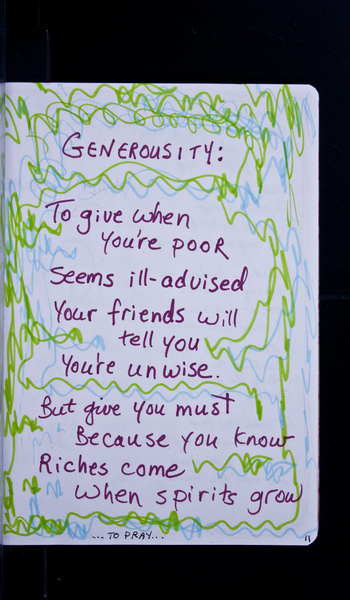 GENEROUSITY:
To give when
you're poor
Seems ill-advised
Your friends will
tell you
You're unwise.
But give you must
Because you know
Riches come
when spirits grow
...TO PRAY...
11